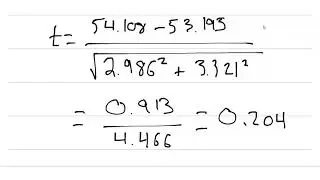 t = \frac{54.108 - 53.193}{\sqrt{2.986² + 3.321²}}
= \frac{0.913}{4.466} = 0.204